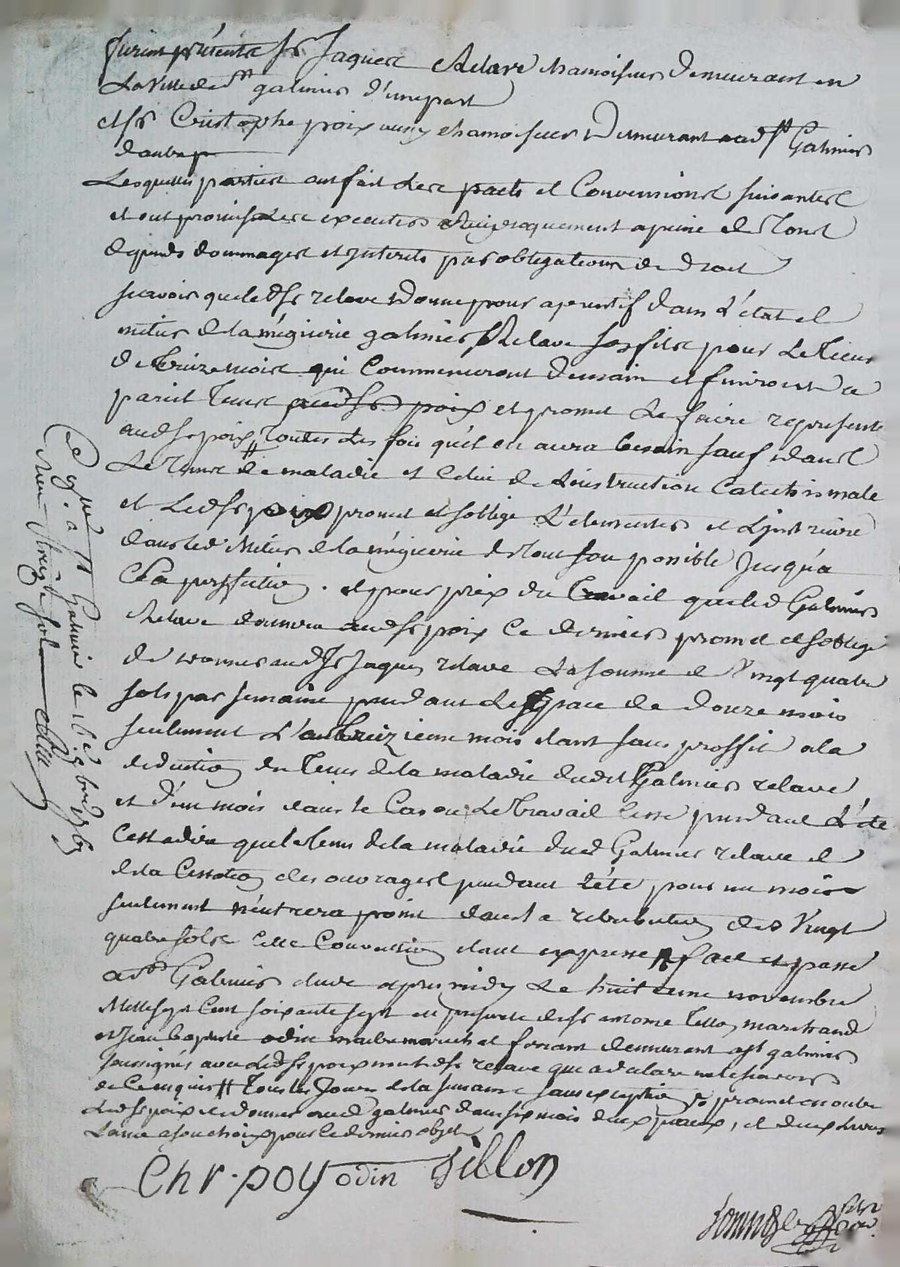 Furent présents Sr Jaques Relave chamoiseur demeurant en
La Ville de St galmier d'une part
et Sr Cristophe poix aussy chamoiseur demeurant aud St Galmier
d'autre p
Lesquelles parties ont fait Les pacts et Conventions suivantes
et ont promis Les executer reciproquement a peine de tous
depends dommages et interets par obligations de droit
scavoir que led Sr relave donne pour aprentif dans L'état et
métier de la mégiserie galmier Relave son fils pour Le tems
de treize mois qui Commenceront demain et finiront a
pareil tems aud Sr poix et promet de faire representer
aud Sr poix toutes Les fois qu'il en aura besoin sauf dans
Le tems # de maladie et celui de L'instruction Catechismale
et Led Sr poix promet et soblige L'elementer et L'instruire
dans led metier de la mégiserie de tout son possible jusqu'a
La perffection. et pour prix du travail que led Galmier
Relave donnera aud Sr poix Ce dernier promet et soblige
de donner aud Sr Jaques relave La somme de Vingt quatre
sols par semaine pendant Lespace de douze mois
seulement L'autreizieme mois etant sans proffit a la
deduction du tems de la maladie dudit Galmier relave
et d'un mois dans le Cas ou Le travail cesse pendant L'été
Cest adire que le tems de la maladie dud Galmier relave et
de la Cessation des ouvrages pendant L'été pour un mois
seulement n'entrera point dans la retribution des Vingt
quatre sols Cette Convention etant expresse fait et passé
a St Galmier etude apres midy Le huitieme novembre
Mille sept Cent soixante sept en presence de Sr antoine tillon marchand
et Jean baptiste odin maitre marechal ferrant demeurant a St galmier
soussignés avec Led Sr poix non led Sr relave qui a declaré ne le scavoir
de Ce enquis # tous les Jours de la semaine sans exception & promet en outre
Led Sr poix de donner aud galmier dans six mois deux peaux, et deux
a son choix pour Ce dernier objet
Chr. poy odin tillon
Con[trôlé] a St Galmier le 16 9bre 1767
Reçu sols